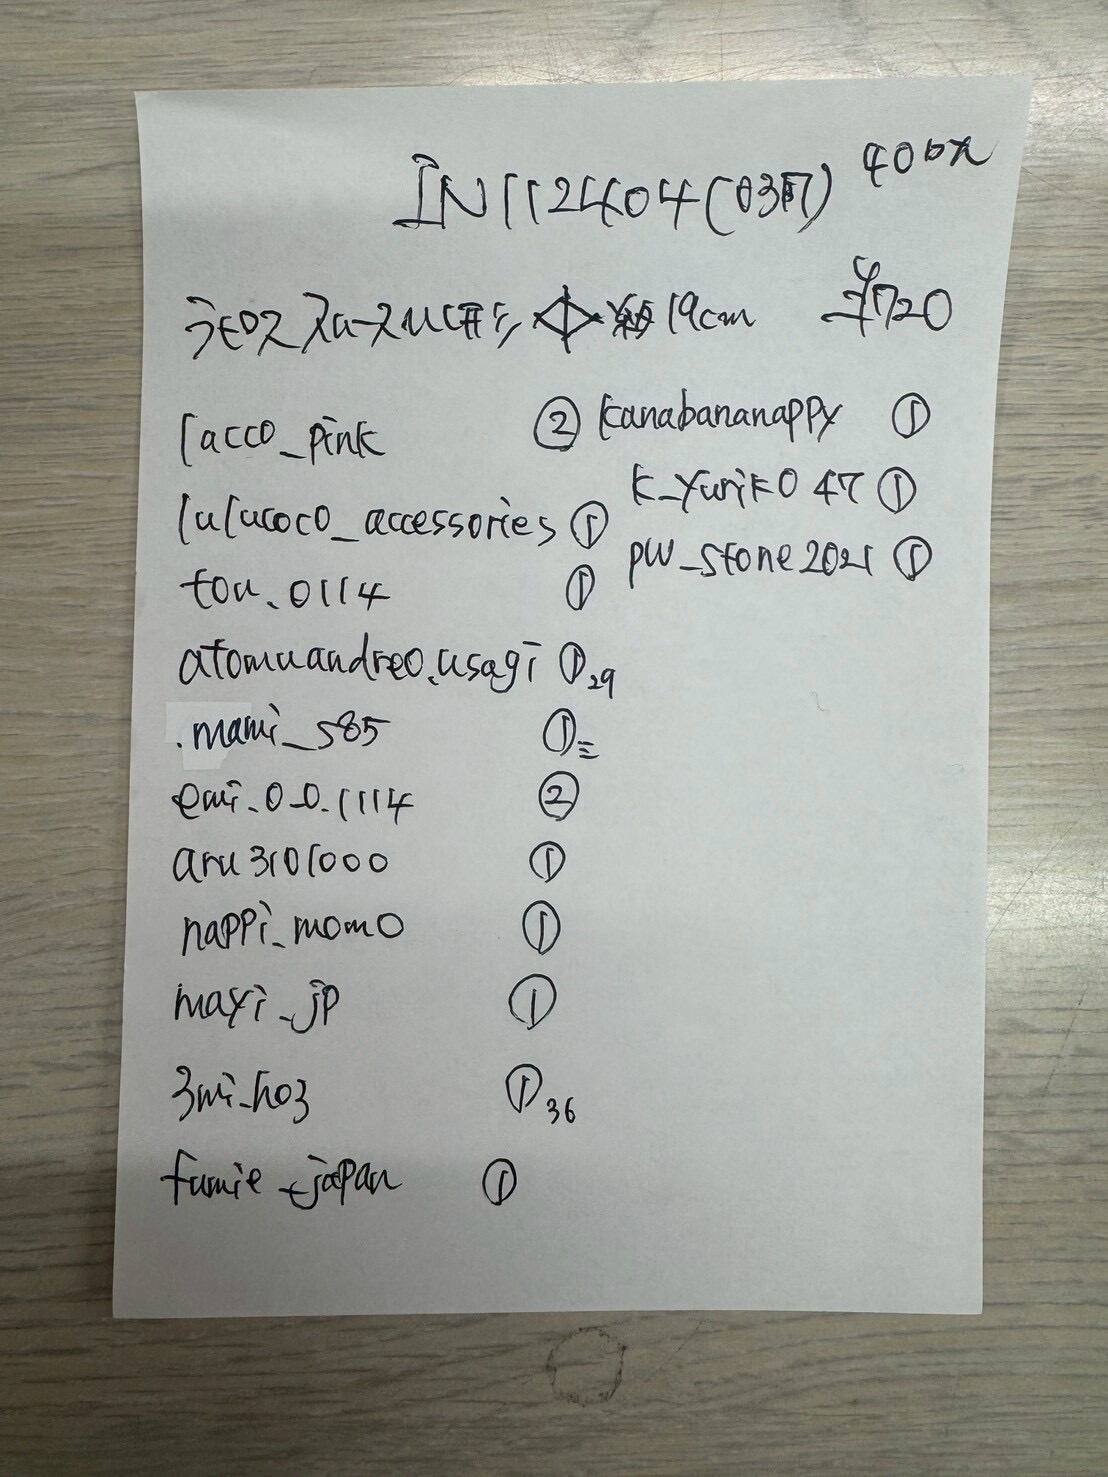 IN112404(03月) 400px
19cm ¥720
lacco_pink ②
lulucoco_accessories ①
tou.0114 ①
atomuandreo.usagi ①29
.mami_s85 ①
emi.0_0.1114 ②
aru3101000 ①
nappi_momo ①
mayi_jp ①
3mi_ho3 ①36
fumie_japan ①
kanabananappy ①
k_yuriko47 ①
pw_stone2021 ①